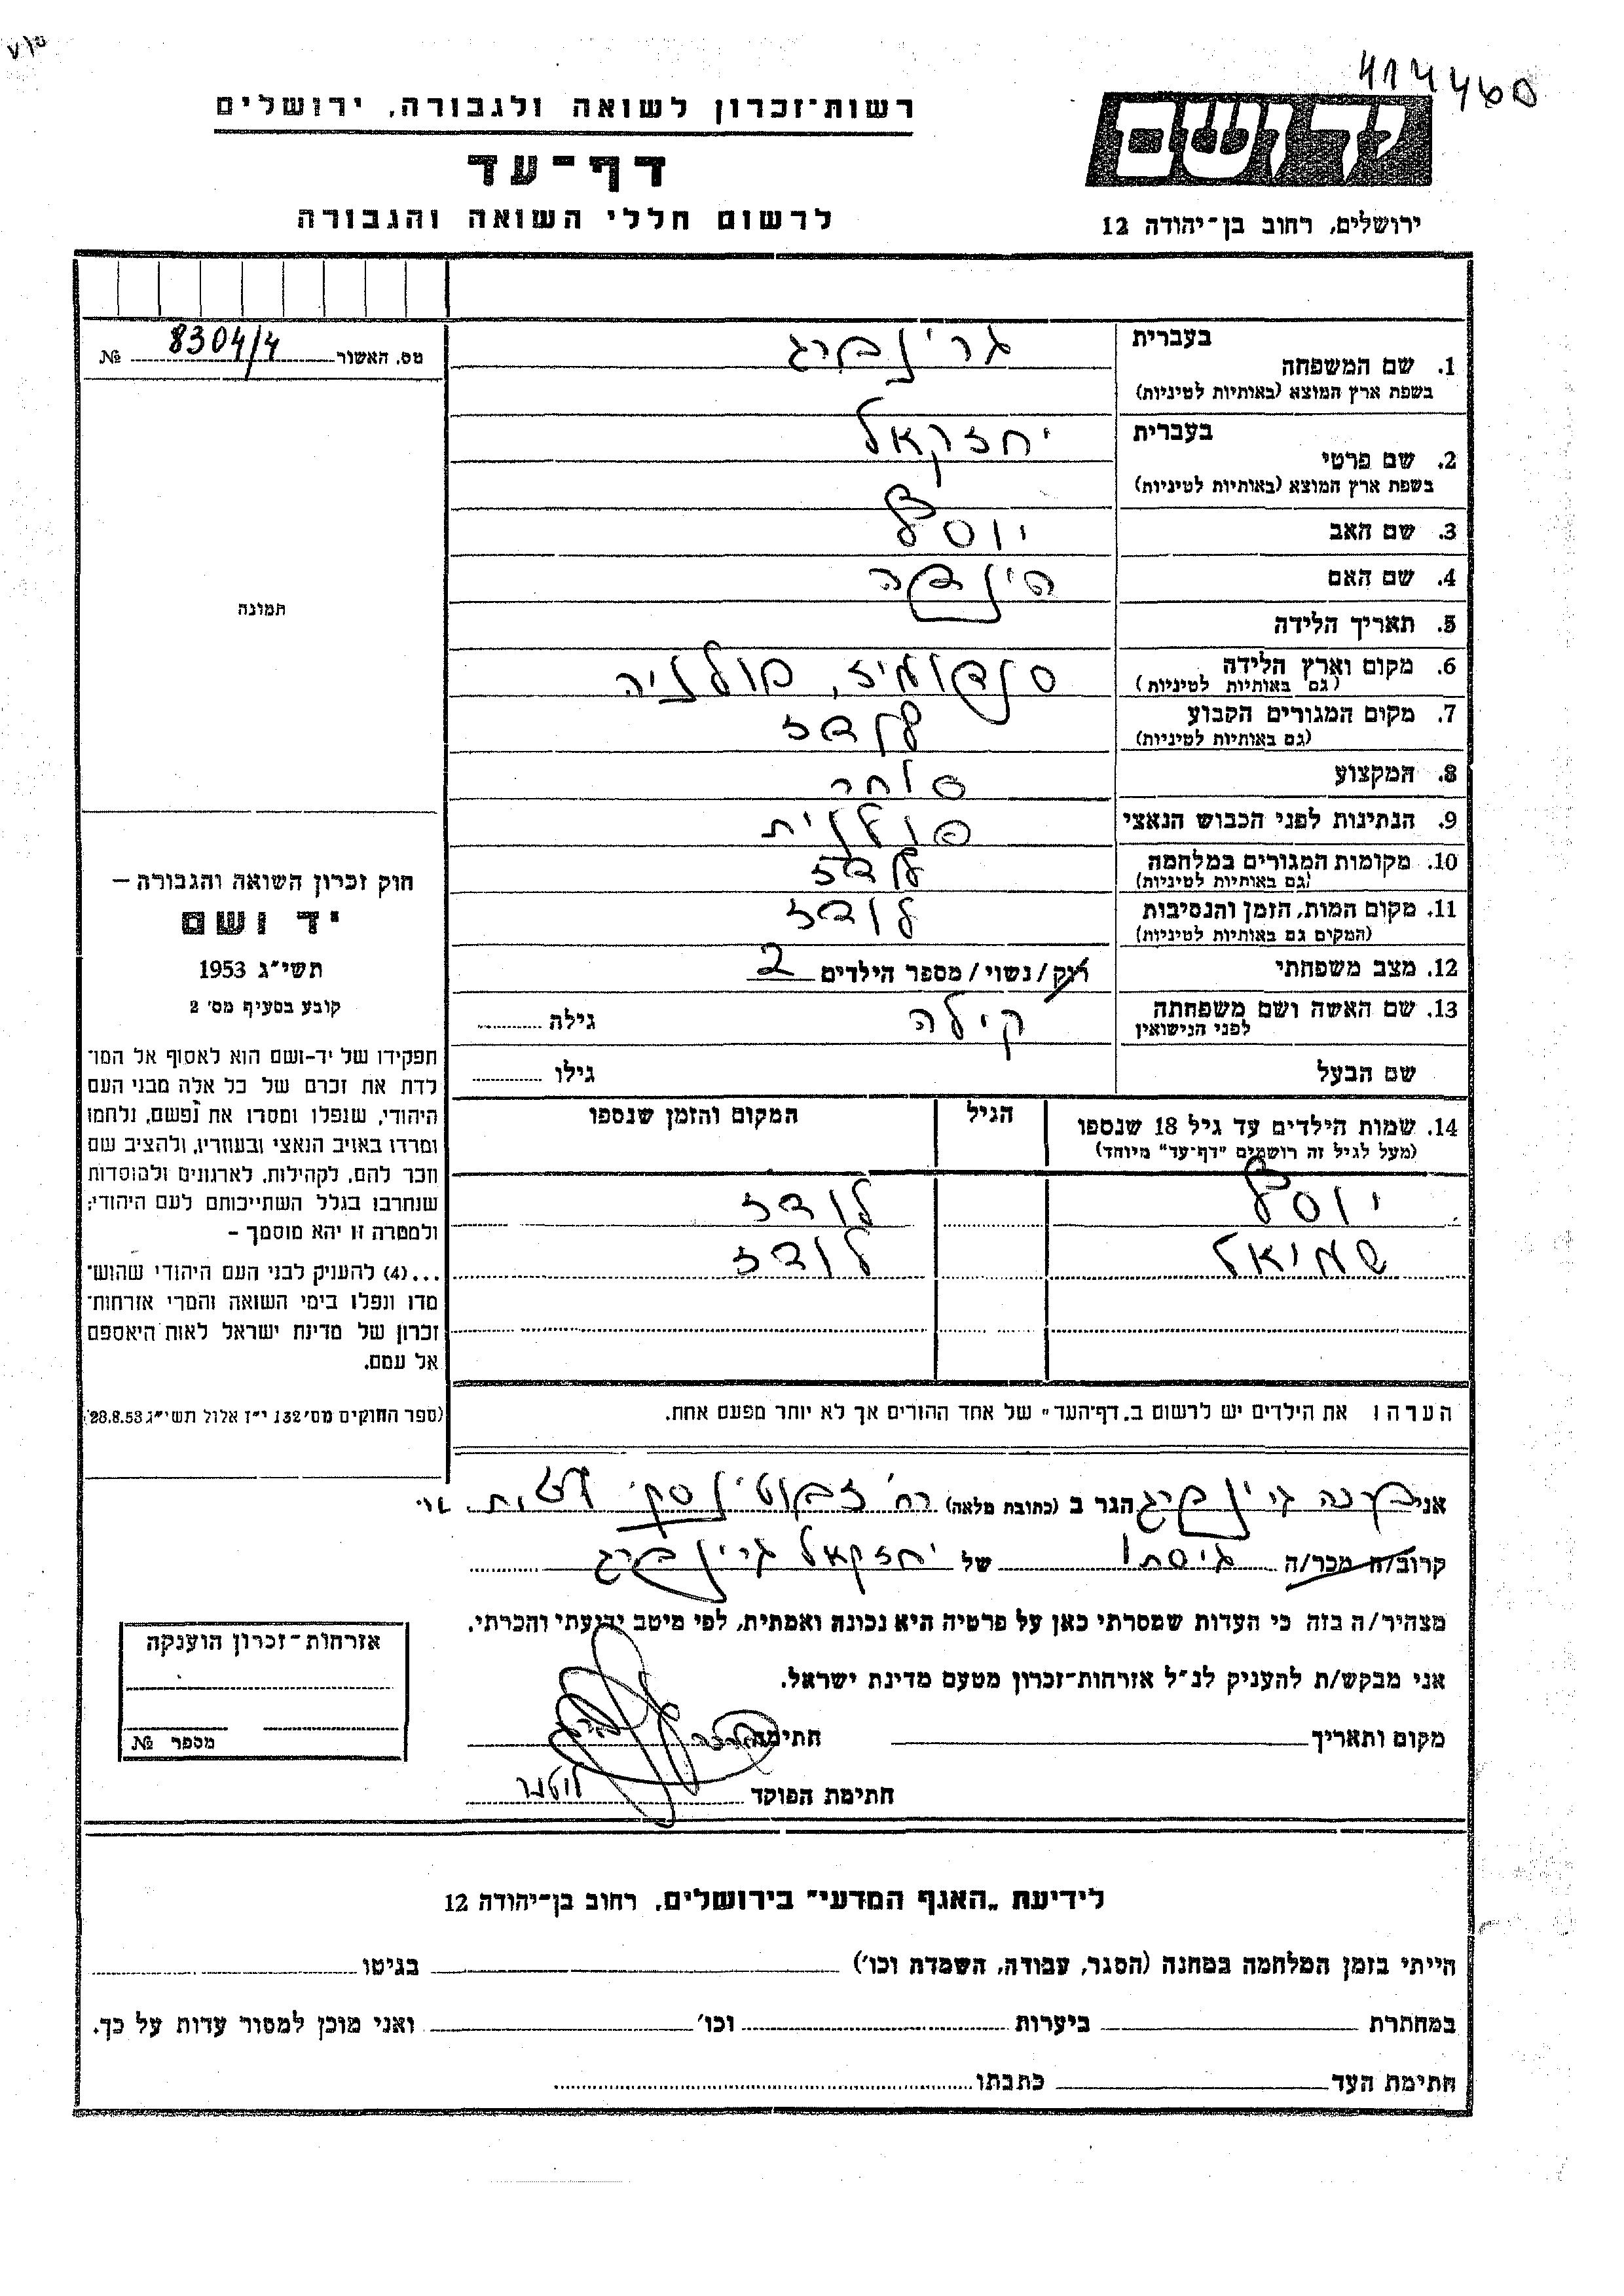 414460
רשות־זכרון לשואה ולגבורה, ירושלים
דף־עד
לרשום חללי השואה והגבורה
ירושלים, רחוב בן־יהודה 12
מס. האשור 8304/4 №
בעברית גרינברג
1. שם המשפחה
בשפת ארץ המוצא (באותיות לטיניות)
בעברית יחזקאל
2. שם פרטי
בשפת ארץ המוצא (באותיות לטיניות)
3. שם האב יוסף
4. שם האם הינדה
5. תאריך הלידה
6. מקום וארץ הלידה סנדומיז, פולניה
(גם באותיות לטיניות)
7. מקום המגורים הקבוע לודז
(גם באותיות לטיניות)
8. המקצוע סוחר
9. הנתינות לפני הכבוש הנאצי פולנית
10. מקומות המגורים במלחמה לודז
(גם באותיות לטיניות)
11. מקום המות, הזמן והנסיבות לודז
(המקום גם באותיות לטיניות)
12. מצב משפחתי רוק/נשוי/מספר הילדים 2
13. שם האשה ושם משפחתה קילה גילה
לפני הנישואין
שם הבעל גילו
14. שמות הילדים עד גיל 18 שנספו הגיל המקום והזמן שנספו
(מעל לגיל זה רושמים "דף־עד" מיוחד)
יוסף לודז
שמואל לודז
הערה: את הילדים יש לרשום ב„דף־העד" של אחד ההורים אך לא יותר מפעם אחת.
תמונה
חוק זכרון השואה והגבורה –
יד ושם
תשי"ג 1953
קובע בסעיף מס' 2
תפקידו של יד-ושם הוא לאסוף אל המו־
לדת את זכרם של כל אלה מבני העם
היהודי, שנפלו ומסרו את נפשם, נלחמו
ומרדו באויב הנאצי ובעוזריו, ולהציב שם
וזכר להם, לקהילות, לארגונים ולמוסדות
שנחרבו בגלל השתייכותם לעם היהודי;
ולמטרה זו יהא מוסמך –
...(4) להעניק לבני העם היהודי שהוש־
מדו ונפלו בימי השואה והמרי אזרחות־
זכרון של מדינת ישראל לאות היאספם
אל עמם.
(ספר החוקים מס' 132 י"ז אלול תשי"ג 28.8.53)
אני גרינברג הגר ב (כתובת מלאה) רח' זבוטינסקי
קרוב/ה מכר/ה גיסתו של יחזקאל גרינברג
מצהיר/ה בזה כי העדות שמסרתי כאן על פרטיה היא נכונה ואמתית, לפי מיטב ידיעתי והכרתי.
אני מבקש/ת להעניק לנ"ל אזרחות־זכרון מטעם מדינת ישראל.
מקום ותאריך חתימה
חתימת הפוקד
אזרחות־זכרון הוענקה
מספר №
לידיעת „האגף המדעי" בירושלים, רחוב בן־יהודה 12
הייתי בזמן המלחמה במחנה (הסגר, עבודה, השמדה וכו') בגיטו
במחתרת ביערות וכו' ואני מוכן למסור עדות על כך.
חתימת העד כתבתו